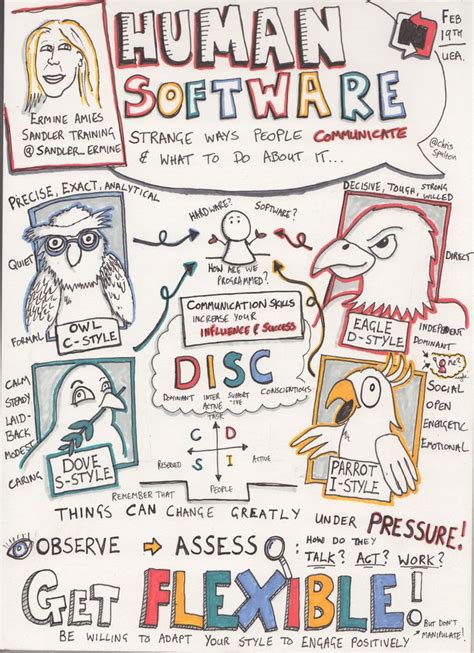 HUMAN
SOFTWARE
FEB
19TH
UEA.
ERMINE AMIES
SANDLER TRAINING
@SANDLER_ERMINE
STRANGE WAYS PEOPLE COMMUNICATE
& WHAT TO DO ABOUT IT...
@Chris
Spalton
PRECISE, EXACT, ANALYTICAL
QUIET
FORMAL
OWL
C-STYLE
HARDWARE?
SOFTWARE?
HOW ARE WE
PROGRAMMED?
DECISIVE, TOUGH, STRONG
WILLED
DIRECT
INDEPENDENT
DOMINANT
EAGLE
D-STYLE
COMMUNICATION SKILLS
INCREASE YOUR
INFLUENCE & SUCCESS
DISC
DOMINANT
INTER
ACTIVE
SUPPORT
-IVE
CONSCIENTIOUS
CALM
STEADY
LAID-
BACK
MODEST
CARING
DOVE
S-STYLE
TASK
C D
RESERVED
ACTIVE
S I
PEOPLE
ME?
SOCIAL
OPEN
ENERGETIC
EMOTIONAL
PARROT
I-STYLE
REMEMBER THAT
THINGS CAN CHANGE GREATLY
UNDER PRESSURE!
OBSERVE
ASSESS
HOW DO THEY
TALK? ACT? WORK?
GET FLEXIBLE!
BUT DON'T
MANIPULATE!
BE WILLING TO ADAPT YOUR STYLE TO ENGAGE POSITIVELY